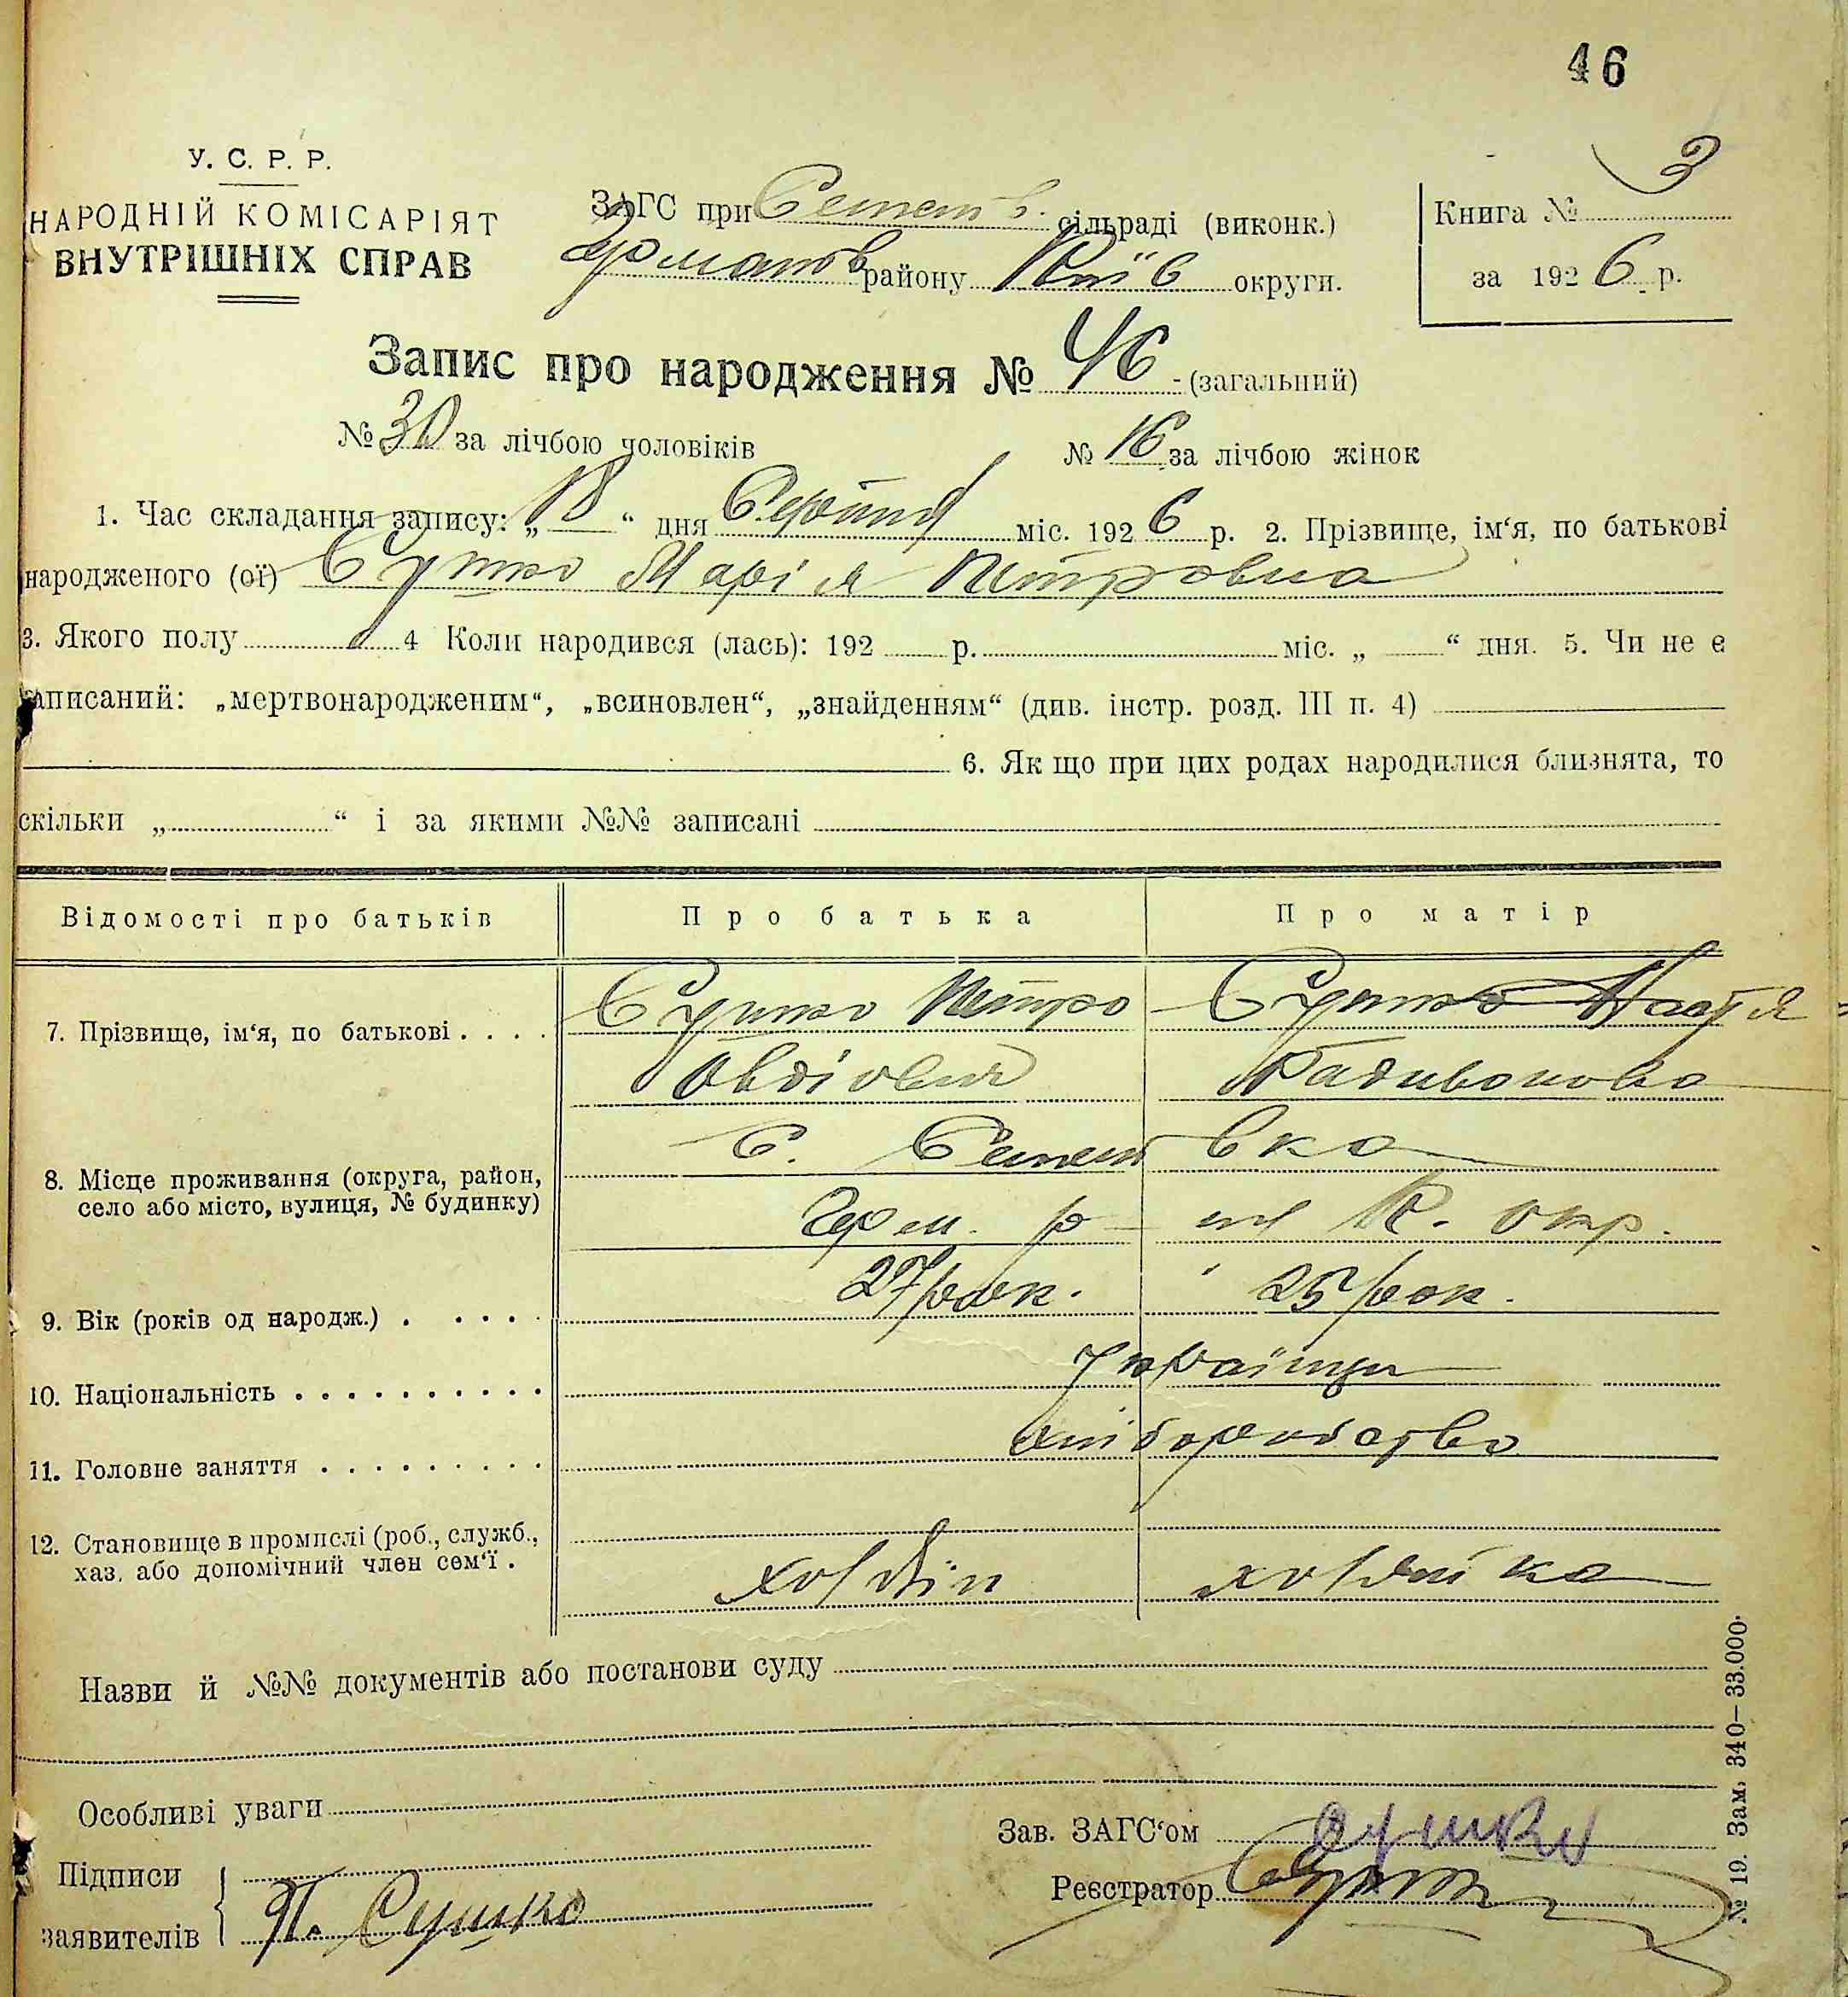 46
У. С. Р. Р.
НАРОДНІЙ КОМІСАРІЯТ
ВНУТРІШНІХ СПРАВ
ЗАГС при Семенів. сільраді (виконк.)
району Київ округи.
Книга № 3
за 1926 р.
Запис про народження № 46 (загальний)
№ 30 за лічбою чоловіків № 16 за лічбою жінок
1. Час складання запису: „18“ дня Серпня міс. 1926 р. 2. Прізвище, ім‘я, по батькові
народженого (ої) Сушко Марія Петровна
3. Якого полу 4 Коли народився (лась): 192 р. міс. „ “ дня. 5. Чи не є
записаний: „мертвонародженим“, „всиновлен“, „знайденням“ (див. інстр. розд. III п. 4)
6. Як що при цих родах народилися близнята, то
скільки „ “ і за якими №№ записані
Відомості про батьків Про батька Про матір
7. Прізвище, ім‘я, по батькові . . . . Сушко Петро Сушко Настя
Овдіович Радивонова
8. Місце проживання (округа, район,
село або місто, вулиця, № будинку)
С. Семенівка
Герм. р-ну К. окр.
9. Вік (років од народж.) . . . . . 27 рок. 25 рок.
10. Національність . . . . . . . . . . Українци
11. Головне заняття . . . . . . . . . хліборобство
12. Становище в промислі (роб., служб.,
хаз. або допомічний член сем‘ї .
хозяїн хозяйка
Назви й №№ документів або постанови суду
Особливі уваги
Зав. ЗАГС‘ом Сушко
Підписи
заявителів П. Сушко
Реєстратор
№ 19. Зам. 340—33.000.